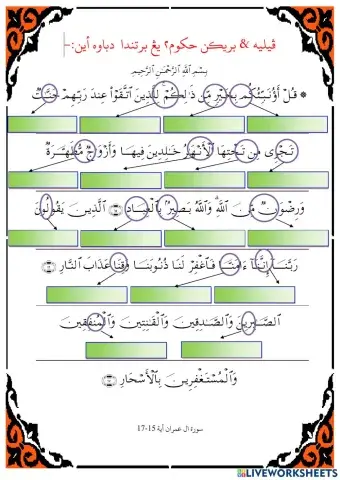 ڤيليه & بريكن حكوم٢ يڠ برتندا دباوه أين:-
بِسْمِ ٱللَّهِ ٱلرَّحْمَـٰنِ ٱلرَّحِيمِ
۞ قُلْ أَؤُنَبِّئُكُم بِخَيْرٍ مِّن ذَٰلِكُمْ لِلَّذِينَ ٱتَّقَوْا۟ عِندَ رَبِّهِمْ جَنَّـٰتٌ
تَجْرِى مِن تَحْتِهَا ٱلْأَنْهَـٰرُ خَـٰلِدِينَ فِيهَا وَأَزْوَٰجٌ مُّطَهَّرَةٌ
وَرِضْوَٰنٌ مِّنَ ٱللَّهِ وَٱللَّهُ بَصِيرٌۢ بِٱلْعِبَادِ ۝١٥ ٱلَّذِينَ يَقُولُونَ
رَبَّنَآ إِنَّنَآ ءَامَنَّا فَٱغْفِرْ لَنَا ذُنُوبَنَا وَقِنَا عَذَابَ ٱلنَّارِ ۝١٦
ٱلصَّـٰبِرِينَ وَٱلصَّـٰدِقِينَ وَٱلْقَـٰنِتِينَ وَٱلْمُنفِقِينَ
وَٱلْمُسْتَغْفِرِينَ بِٱلْأَسْحَارِ ۝١٧
سورة ال عمران أية 15-17
LIVEWORKSHEETS